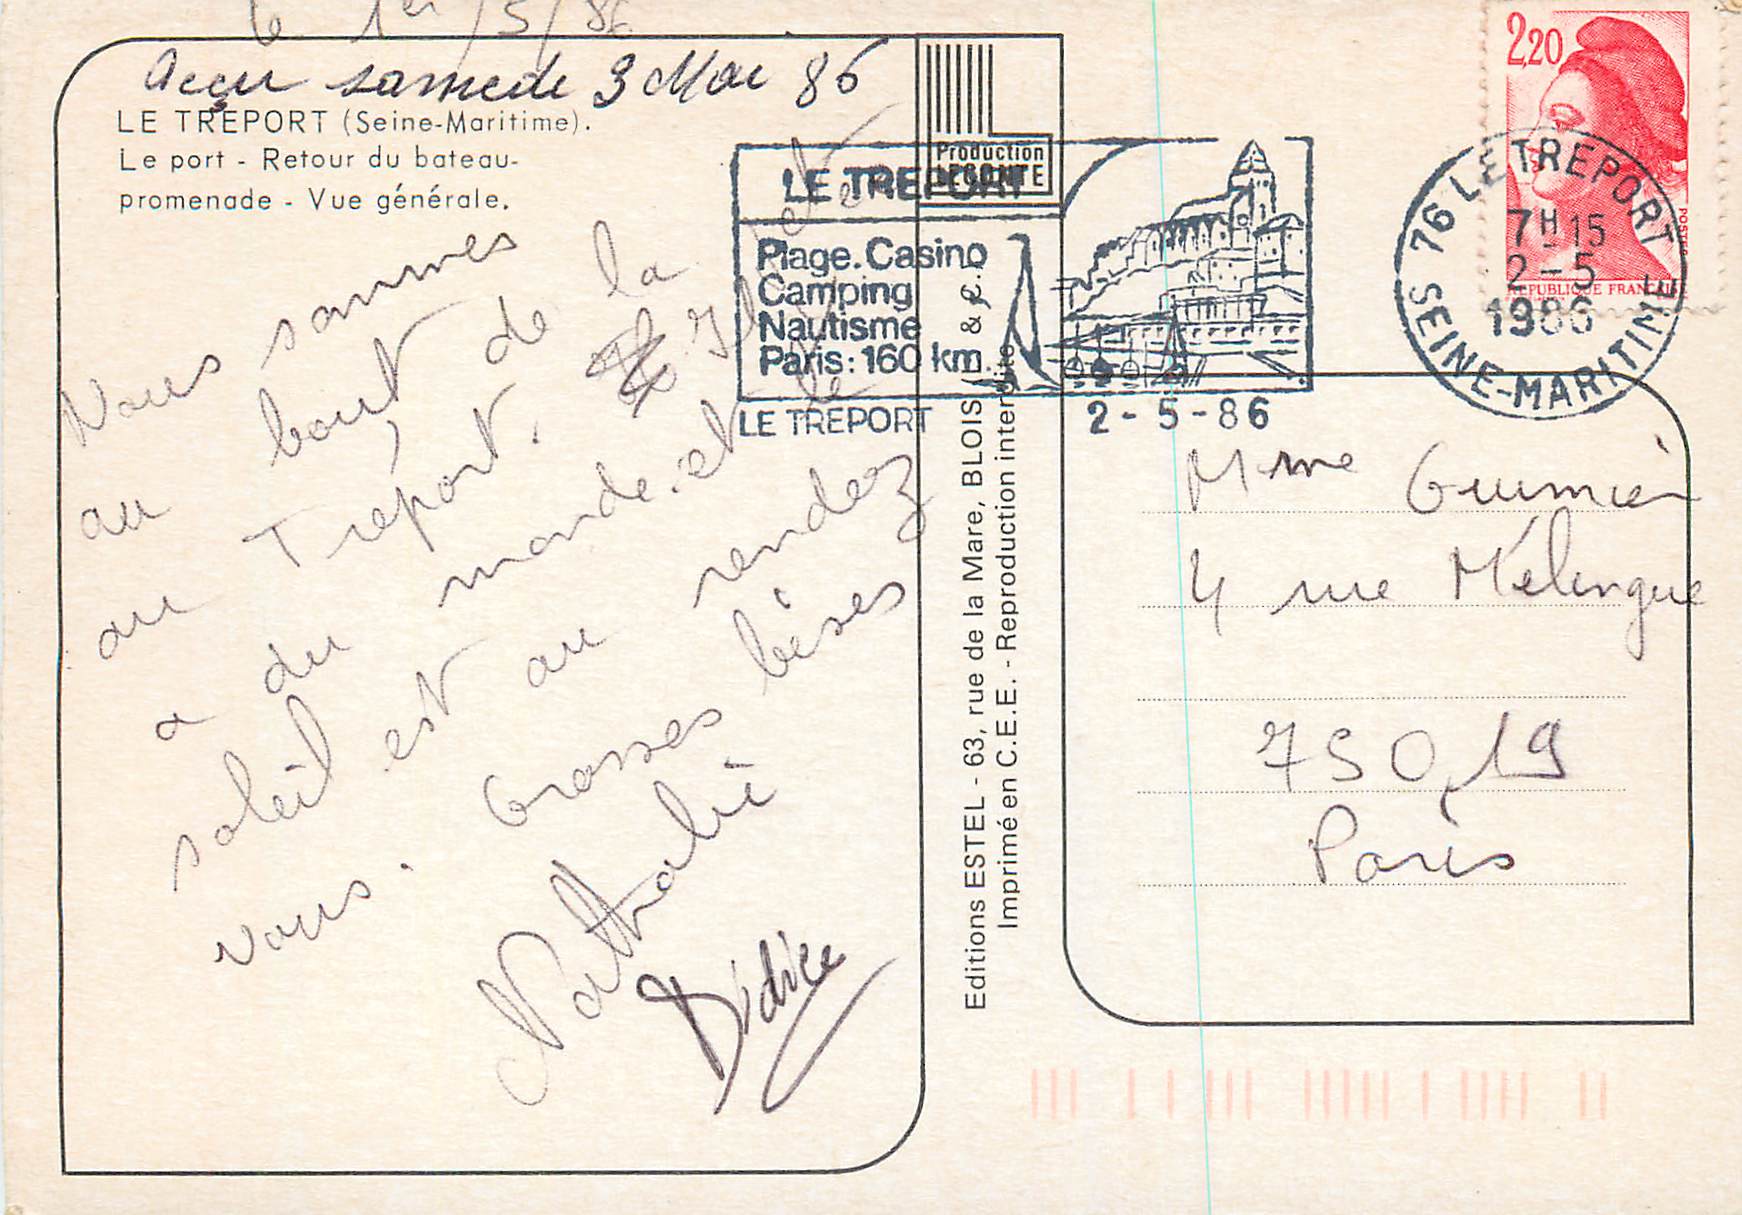 le 1er/5/86
Reçu samedi 3 Mai 86
LE TREPORT (Seine-Maritime).
Le port - Retour du bateau-
promenade - Vue générale.
Nous sommes
au bout de la
au Tréport. Il y
a du monde et le
soleil est au rendez
vous. Grosses bises
Nathalie
Didier
Production
LECONTE
Editions ESTEL - 63, rue de la Mare, BLOIS &
Imprimé en C.E.E. - Reproduction interdite
LE TREPORT
Plage. Casino
Camping
Nautisme
Paris: 160 km.
LE TREPORT
2-5-86
2,20
REPUBLIQUE FRANÇAISE
POSTES
76 LE TREPORT
7H15
2-5
1986
SEINE-MARITIME
Mme
4 rue Mélingue
75019
Paris